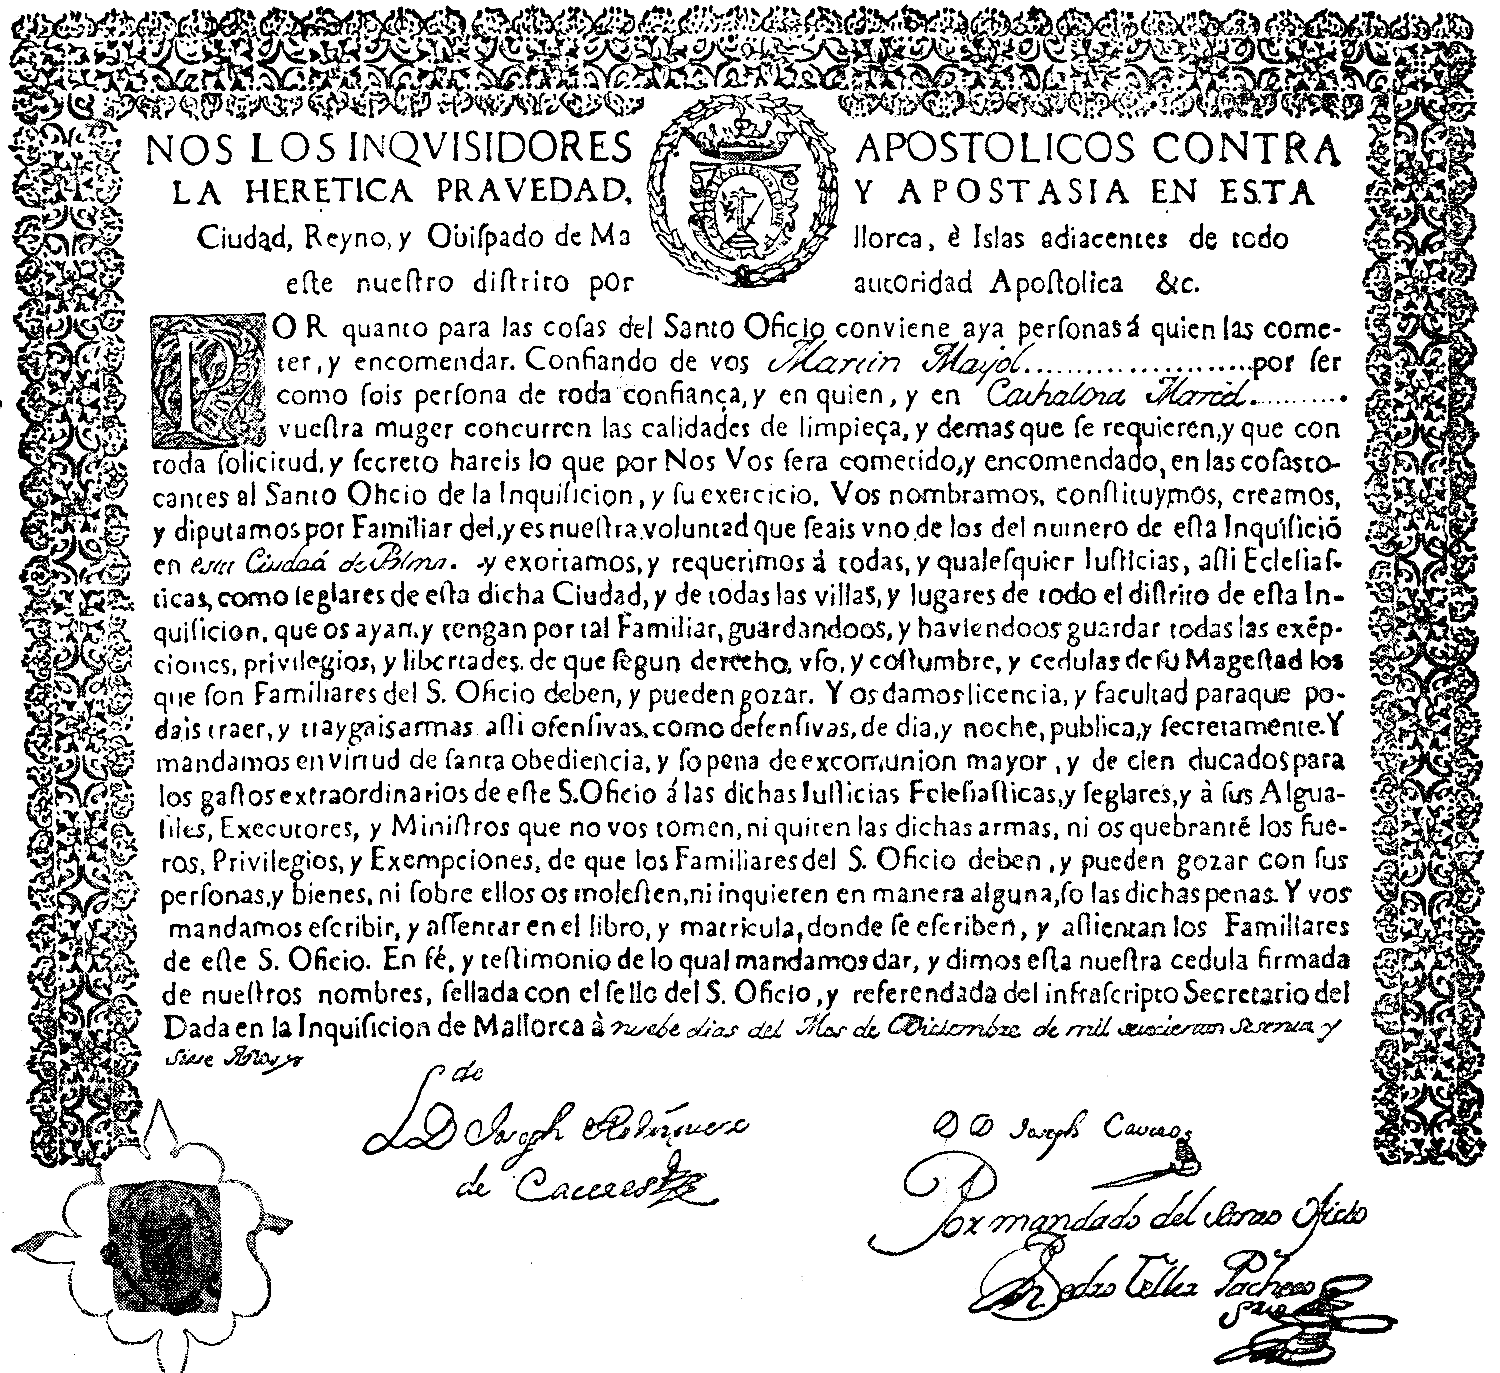 NOS LOS INQVISIDORES APOSTOLICOS CONTRA
LA HERETICA PRAVEDAD, Y APOSTASIA EN ESTA
Ciudad, Reyno, y Obiſpado de Mallorca, è Islas adiacentes de todo
eſte nueſtro diſtrito por autoridad Apoſtolica &c.
POR quanto para las coſas del Santo Oficio conviene aya perſonas á quien las come-
ter, y encomendar. Confiando de vos Martin Mayol.....................por ſer
como ſois perſona de toda confiança, y en quien, y en Cathalina ..........
vueſtra muger concurren las calidades de limpieça, y demas que ſe requieren, y que con
toda ſolicitud, y ſecreto hareis lo que por Nos Vos ſera cometido, y encomendado, en las coſas to-
cantes al Santo Oficio de la Inquiſicion, y ſu exercicio, Vos nombramos, conſtituymos, creamos,
y diputamos por Familiar del, y es nueſtra voluntad que ſeais vno de los del numero de eſta Inquiſició
en esta Ciudad de Palma. y exortamos, y requerimos á todas, y qualeſquier Iuſticias, aſſi Ecleſiaſ-
ticas, como ſeglares de eſta dicha Ciudad, y de todas las villas, y lugares de todo el diſtrito de eſta In-
quiſicion, que os ayan, y tengan por tal Familiar, guardandoos, y haviendoos guardar todas las exép-
ciones, privilegios, y libertades, de que ſegun derecho, vſo, y coſtumbre, y cedulas de ſu Mageſtad los
que ſon Familiares del S. Oficio deben, y pueden gozar. Y os damos licencia, y facultad paraque po-
dais traer, y traygais armas aſſi ofenſivas, como defenſivas, de dia, y noche, publica, y ſecretamente. Y
mandamos en virtud de ſanta obediencia, y ſo pena de excomunion mayor, y de cien ducados para
los gaſtos extraordinarios de eſte S. Oficio á las dichas Iuſticias Ecleſiaſticas, y ſeglares, y à ſus Algua-
ſiles, Executores, y Miniſtros que no vos tomen, ni quiten las dichas armas, ni os quebranté los fue-
ros, Privilegios, y Exempciones, de que los Familiares del S. Oficio deben, y pueden gozar con ſus
perſonas, y bienes, ni ſobre ellos os moleſten, ni inquieren en manera alguna, ſo las dichas penas. Y vos
mandamos eſcribir, y aſſentar en el libro, y matricula, donde ſe eſcriben, y aſſientan los Familiares
de eſte S. Oficio. En fé, y teſtimonio de lo qual mandamos dar, y dimos eſta nueſtra cedula firmada
de nueſtros nombres, ſellada con el ſello del S. Oficio, y referendada del infraſcripto Secretario del
Dada en la Inquiſicion de Mallorca à nuebe dias del Mes de Diciembre de mil setecientos sesenta y
siete Años
L.do D Joseph
de Caceres
D D Joseph
Por mandado del Santo Oficio
Pedro Tellez Pacheco
Srio